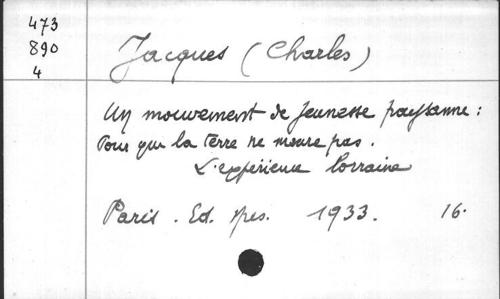 473
890
4
Jacques (Charles)
Un mouvement de jeunesse paysanne :
Pour que la terre ne meure pas.
L'expérience lorraine
Paris. Ed. Spes. 1933. 16.